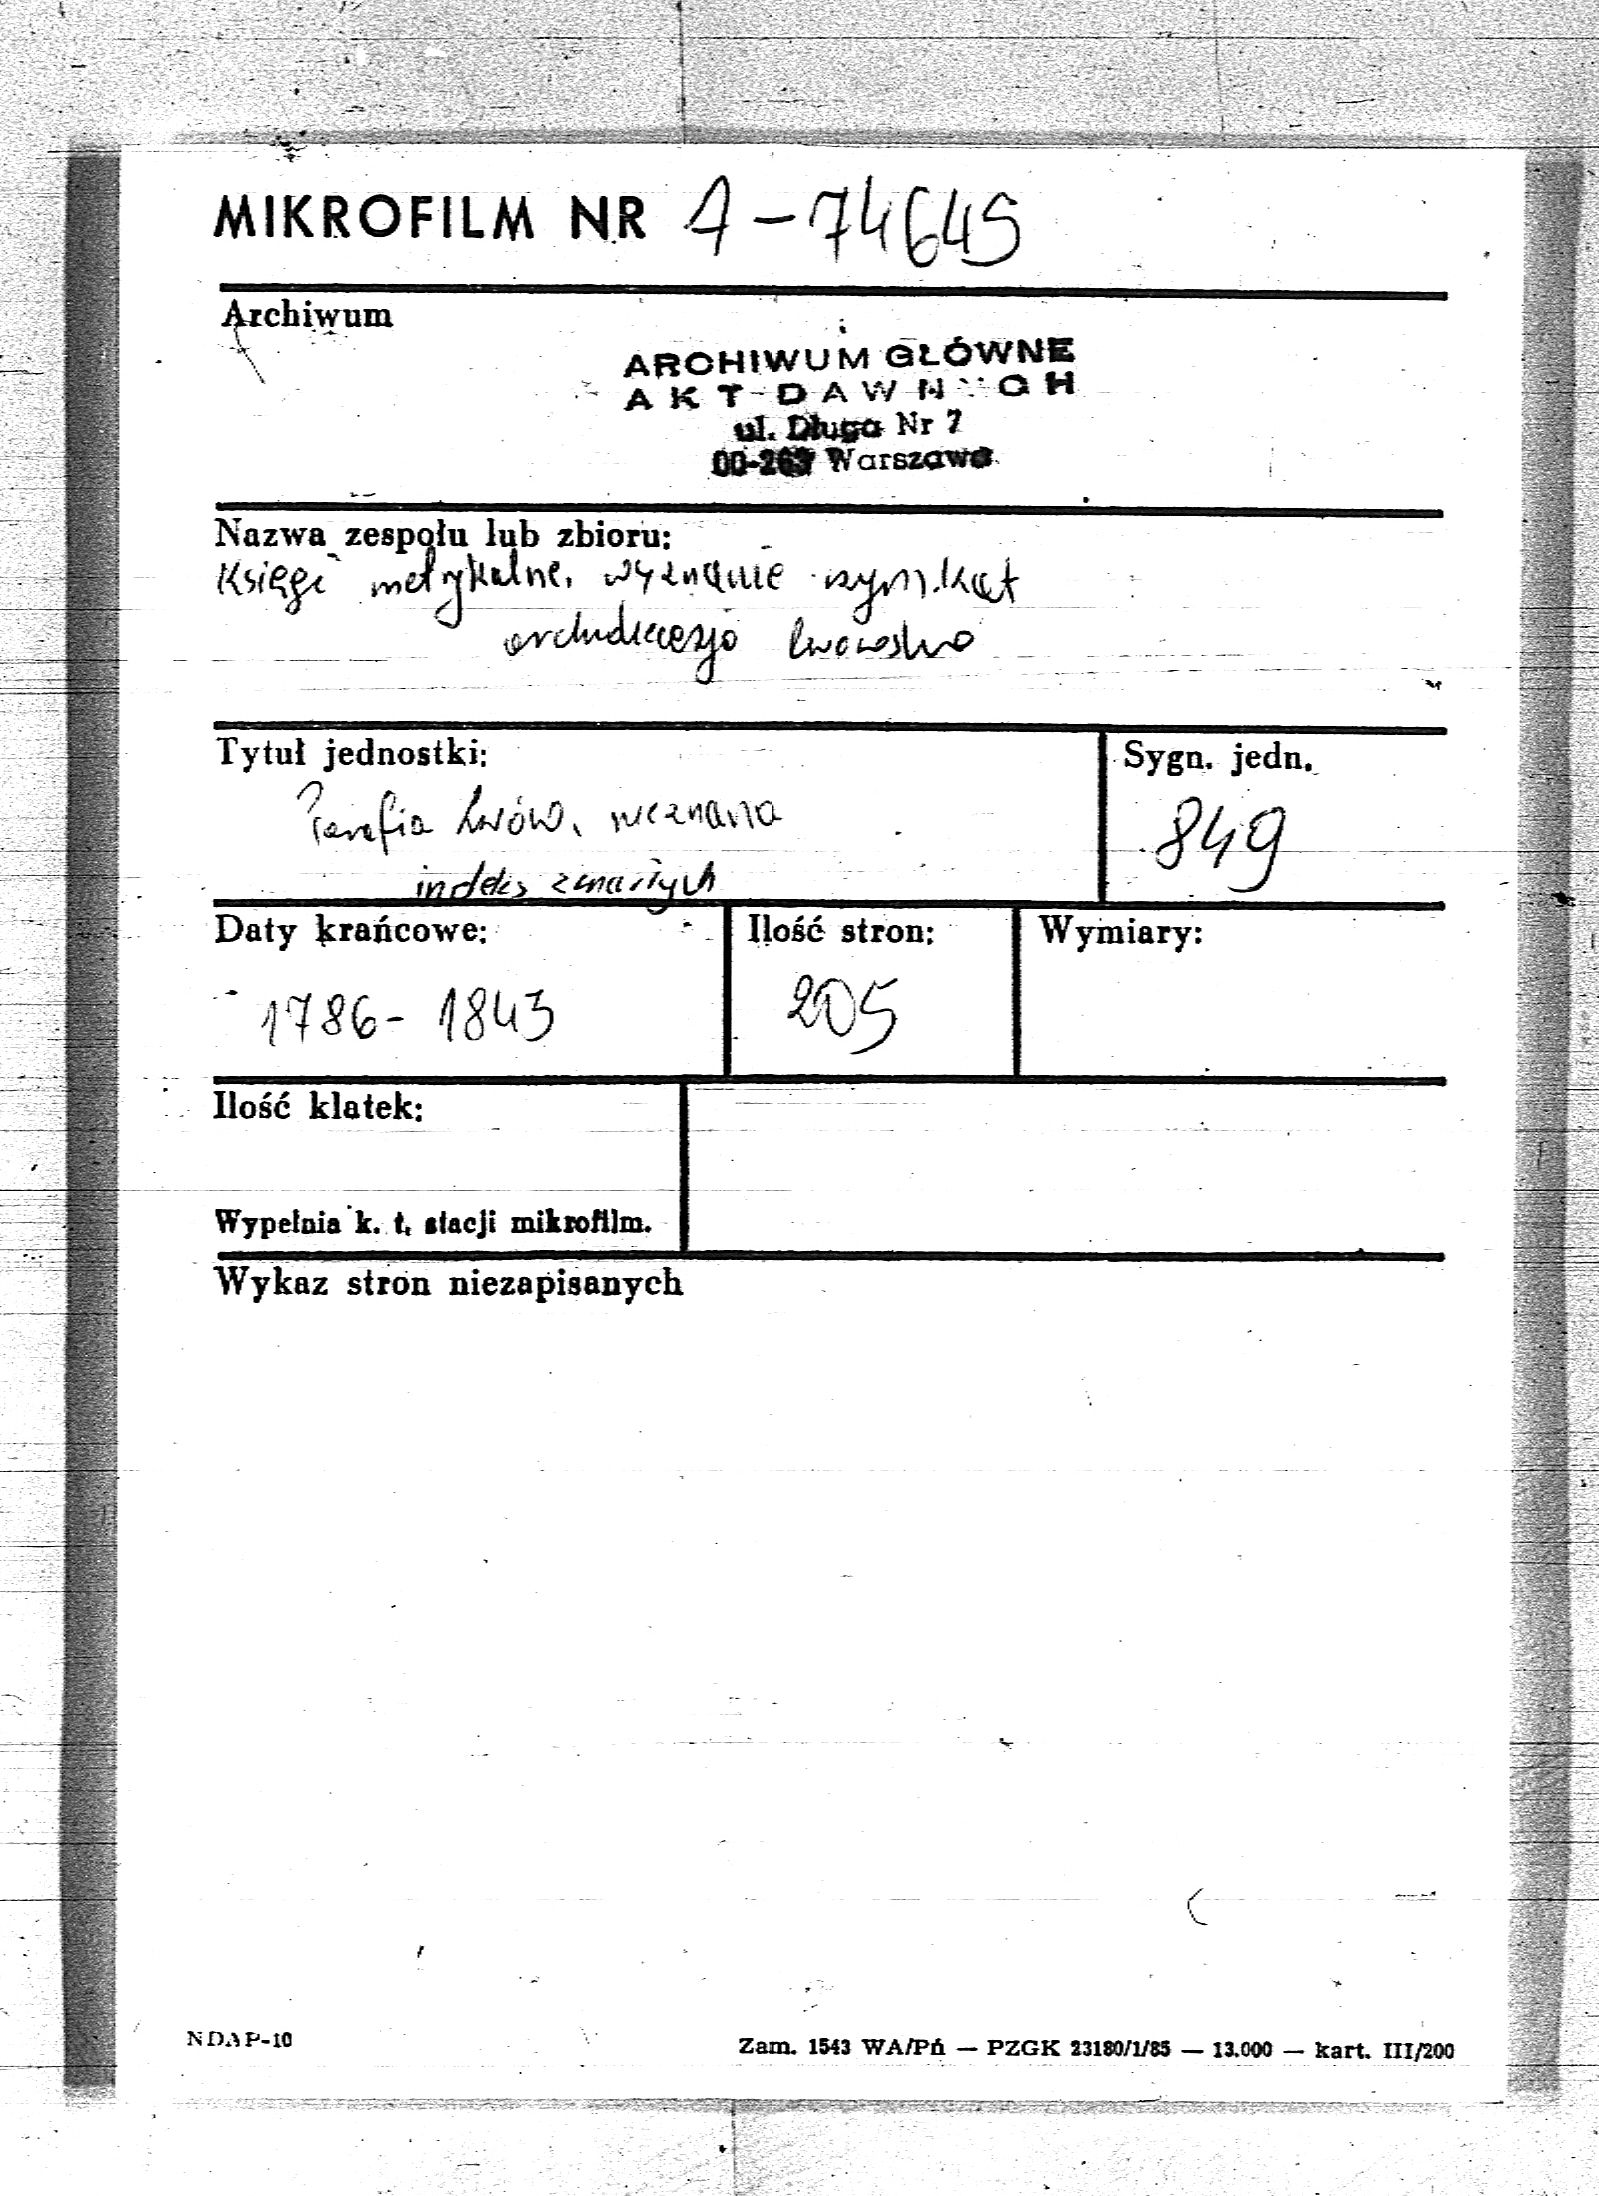 MIKROFILM NR A-74645
Archiwum
ARCHIWUM GŁÓWNE
AKT DAWNYCH
ul. Długa Nr 7
00-263 Warszawa
Nazwa zespołu lub zbioru:
Księgi metrykalne, wyznanie rzym.kat
archidiecezja lwowska
Tytuł jednostki:
Sygn. jedn.
Parafia Lwów, nieznana
indeks zmarłych
849
Daty krańcowe:
Ilość stron:
Wymiary:
1786- 1843
205
Ilość klatek:
Wypełnia k. t. stacji mikrofilm.
Wykaz stron niezapisanych
NDAP-10
Zam. 1543 WA/Pń — PZGK 23180/1/85 — 13.000 — kart. III/200